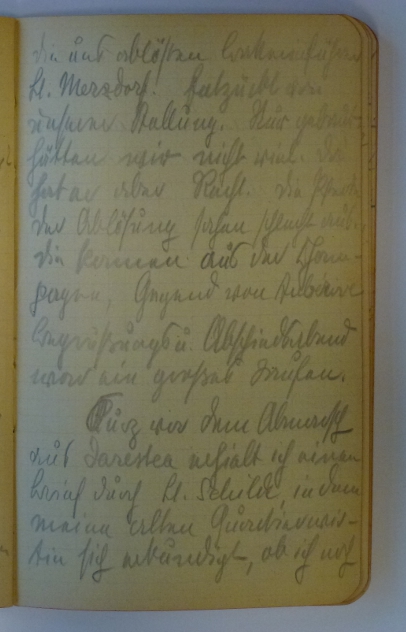 die uns ablösten Batterieführer
Lt. Merzdorf. Entzückt von
unserer Stellung. Nur gebaut
hätten wir nicht viel. Da
hat er aber Recht. Die Pferde
der Ablösung sahen schlecht aus.
Die kamen aus der Cham-
pagne, Gegend von
Begrüßungs u. Abschiedsabend
war ein großes Saufen.
Kurz vor dem Abmarsch
aus Darestea erhielt ich einen
Brief durch Lt. Schilde, in dem
meine alten Quartierwir-
tin sich erkundigt, ob ich noch